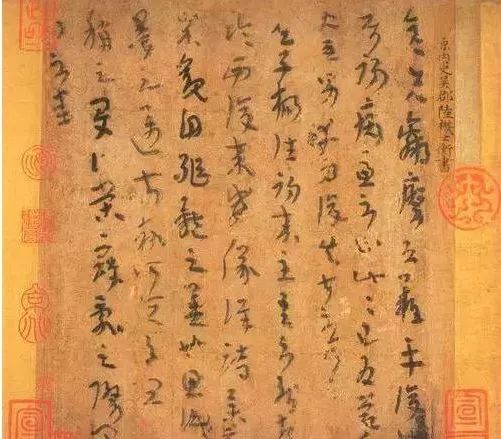 原内史吳郡陸機士衡書
彦先羸瘵恐難平復
往屬初病慮不止此此已為慶
承使唯男幸為復失前憂耳
吳子楊往初來主吾不能
臨西復來威儀詳跱舉動
成觀自軀體之美也思識
量之邁前執所恒有
稱之夏伯榮寇亂之際
問不悉